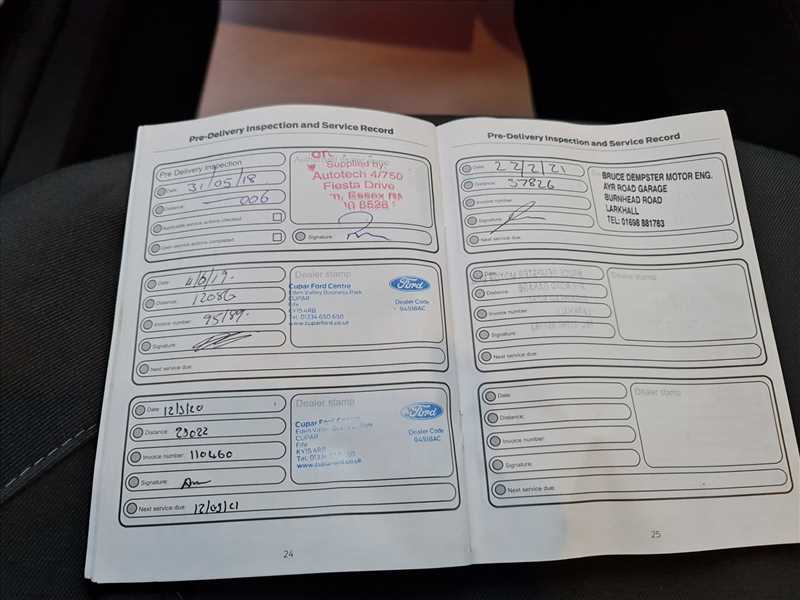 Pre-Delivery Inspection and Service Record
Pre Delivery Inspection
Date: 31/05/18
Distance: 006
Applicable service actions checked
Open service actions completed
Supplied by:
Autotech 4/750
Fiesta Drive
Essex
8526
Signature:
Date: 4/6/19.
Distance: 12086
Invoice number: 95189.
Signature:
Next service due:
Dealer stamp
Cupar Ford Centre
Eden Valley Business Park
CUPAR
Fife
KY15 4RB
Tel. 01334 650 650
www.cuparford.co.uk
Ford
Dealer Code
94918AC
Date: 12/3/20
Distance: 23022
Invoice number: 110460
Signature:
Next service due: 12/03/21
Dealer stamp
Cupar Ford Centre
Eden Valley Business Park
CUPAR
Fife
KY15 4RB
www.cuparford.co.uk
Ford
Dealer Code
94918AC
24
Pre-Delivery Inspection and Service Record
Date: 22/2/21
Distance: 37826
Invoice number:
Signature:
Next service due:
BRUCE DEMPSTER MOTOR ENG.
AYR ROAD GARAGE
BURNHEAD ROAD
LARKHALL
TEL: 01698 881783
Date:
Distance:
Invoice number:
Signature:
Next service due:
Dealer stamp
Date:
Distance:
Invoice number:
Signature:
Next service due:
Dealer stamp
25